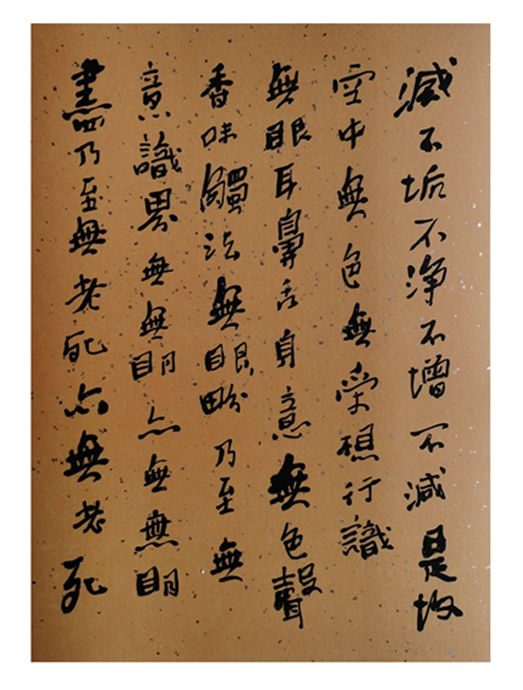 滅不垢不淨不增不減是故
空中無色無受想行識
無眼耳鼻舌身意無色聲
香味觸法無眼界乃至無
意識界無無明亦無無明
盡乃至無老死亦無老死